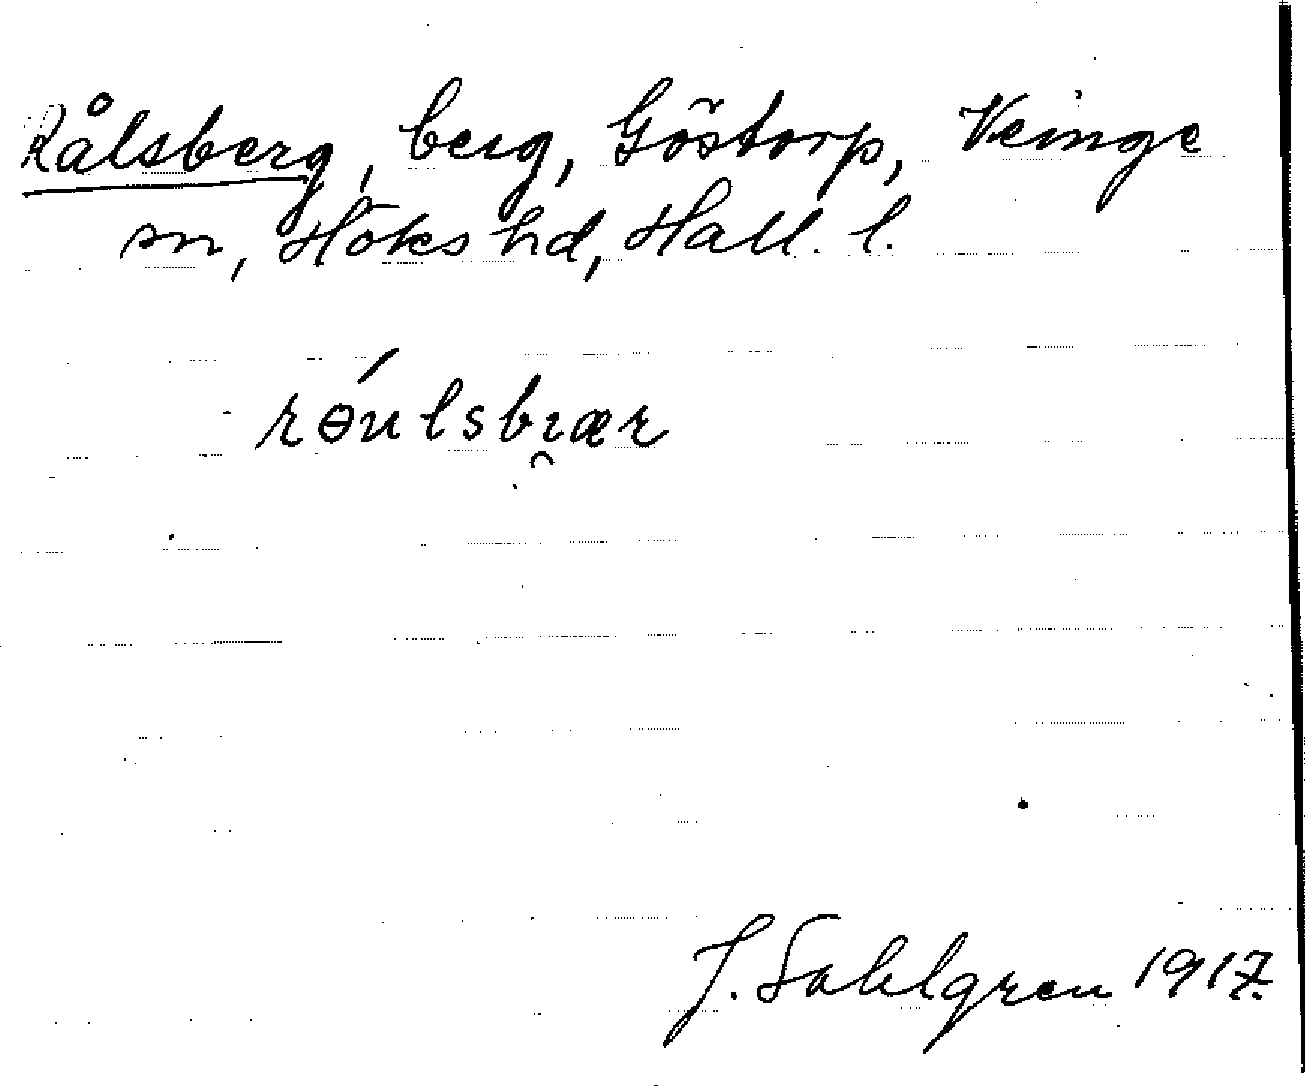 Rålsberg, berg, Göstorp, Veinge
sn, Höks hd, Hall. l.
rɵ́ulsbɪ̯ær
J. Sahlgren 1917.